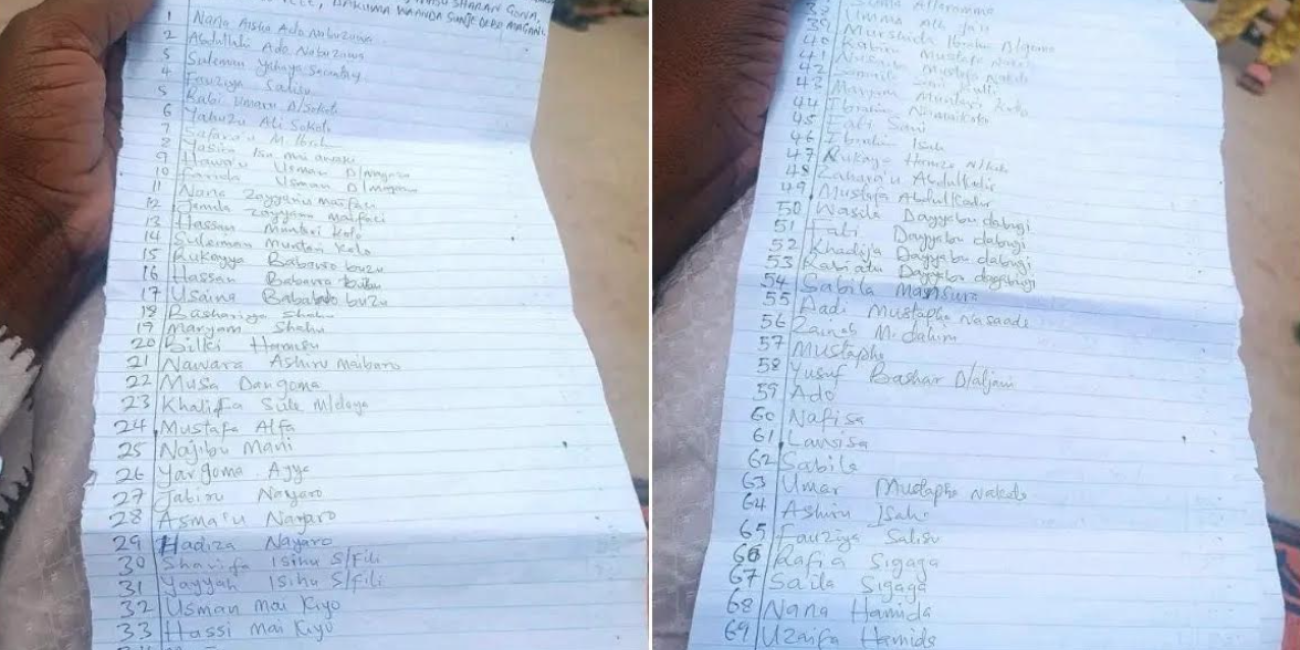 SHARAN GONA,
BAKUMA WANDA SUNJE DEBO MAGANI
1 Nana Aisha Ado Nabuzuwa
2 Abdullahi Ado Nabuzuwa
3 Suleman Yahaya
4 Fauziya Salisu
5 Rabi Umaru D/Sokoto
6 Yahuzu Ali Sokoto
7 Safara'u M.
8 Yasira Isa mai
9 Hawa'u Usman D/magaji
10 Farida Usman D/magaji
11 Nana Zayyanu maifati
12 Jamila Zayyanu maifati
13 Hassan Muntari Kolo
14 Suleiman Muntari Kolo
15 Rukayya Babawo buzu
16 Hassan Babawa buzu
17 Usaina Baba buzu
18 Bashariya Shehu
19 Maryam Shehu
20 Bilki Hamisu
21 Nawara Ashiru maibaro
22 Musa Dangoma
23 Khalifa Sule M/doya
24 Mustafa Alfa
25 Najibu Mani
26 Yargoma Agge
27 Jabiru Nayaro
28 Asma'u Nayaro
29 Hadiza Nayaro
30 Sharifa Isihu S/fili
31 Yayyah Isihu S/fili
32 Usman Mai Kiyo
33 Hassi Mai Kiyo
39 Umma Alh
Murshida Ibrahim D/goma
40 Kabiru Mustafa
41 Nusaiba Mustafa Nakade
42 Sani
43 Maryam Muntari Kolo
44 Ibrahim
45 Fati Sani
46 Ibrahim Isah
47 Rukaya Hamza
48 Zahara'u Abdulkadir
49 Mustafa Abdulkadir
50 Wasila Dayyabu dabugi
51 Fati Dayyabu dabugi
52 Khadija Dayyabu dabugi
53 Rabiatu Dayyabu dagabugi
54 Sabila Mansur
55 Hadi Mustapha Nasaade
56 Zainab M. dahim
57 Mustapha
58 Yusuf Bashar D/aljani
59 Ado
60 Nafisa
61 Lawisa
62 Sabile
63 Umar Mustapha Nakade
64 Ashiru Isah
65 Fauziya Salisu
66 Rafi'a Sigaga
67 Saila Sigaga
68 Nana Hamida
69 Uzaifa Hamida